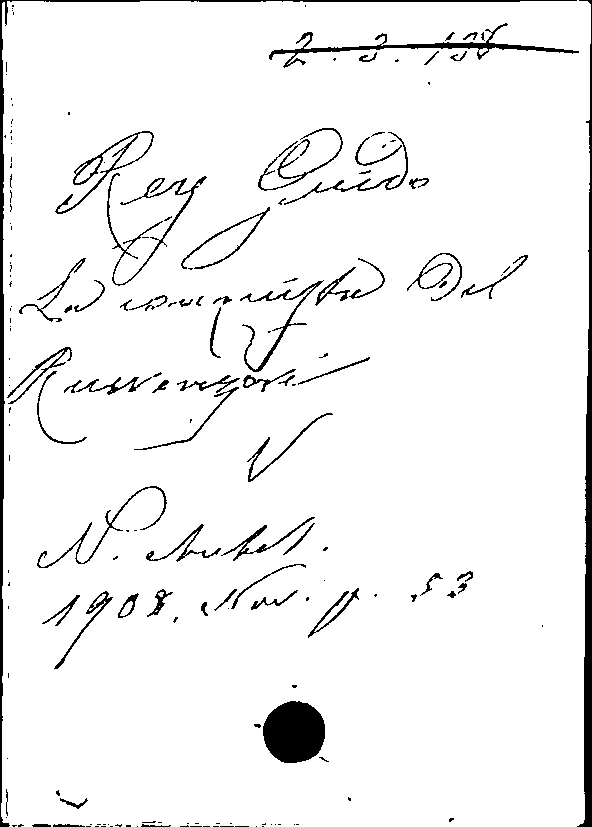 2. 3. 138
Rey Guido
La conquista del
Ruwenzori
V
N. Antol.
1908. Nov. p. 53